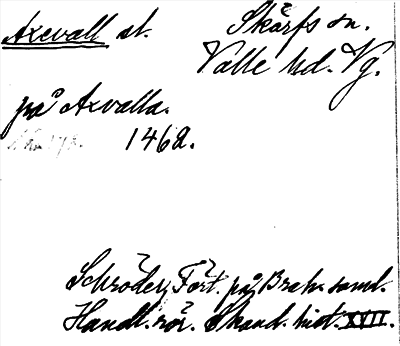 Axevall sl. Skärfs sn.
Valle hd. Vg.
på Axvalla.
1462.
Schröder, Fört. på Brah. saml.
Handl. rör. Skand. hist. XVII.